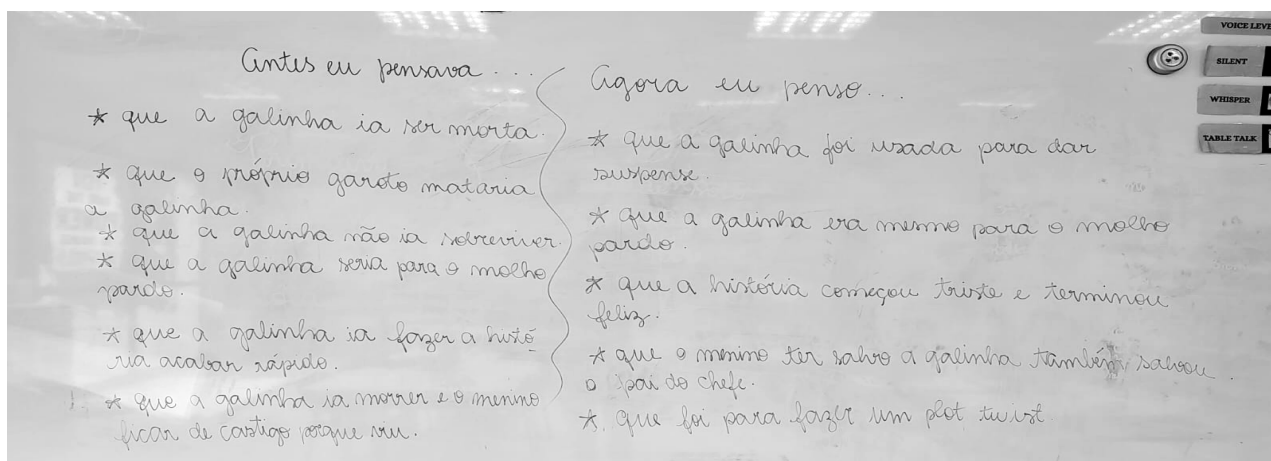 Antes eu pensava...
* que a galinha ia ser morta.
* que o próprio garoto mataria
a galinha.
* que a galinha não ia sobreviver.
* que a galinha seria para o molho
pardo.
* que a galinha ia fazer a histó
ria acabar rápido.
* que a galinha ia morrer e o menino
ficar de castigo porque viu.
Agora eu penso...
* que a galinha foi usada para dar
suspense.
* que a galinha era mesmo para o molho
pardo.
* que a história começou triste e terminou
feliz.
* que o menino ter salvo a galinha também salvou
o pai do chefe.
* que foi para fazer um plot twist.
VOICE LEVE
SILENT
WHISPER
TABLE TALK